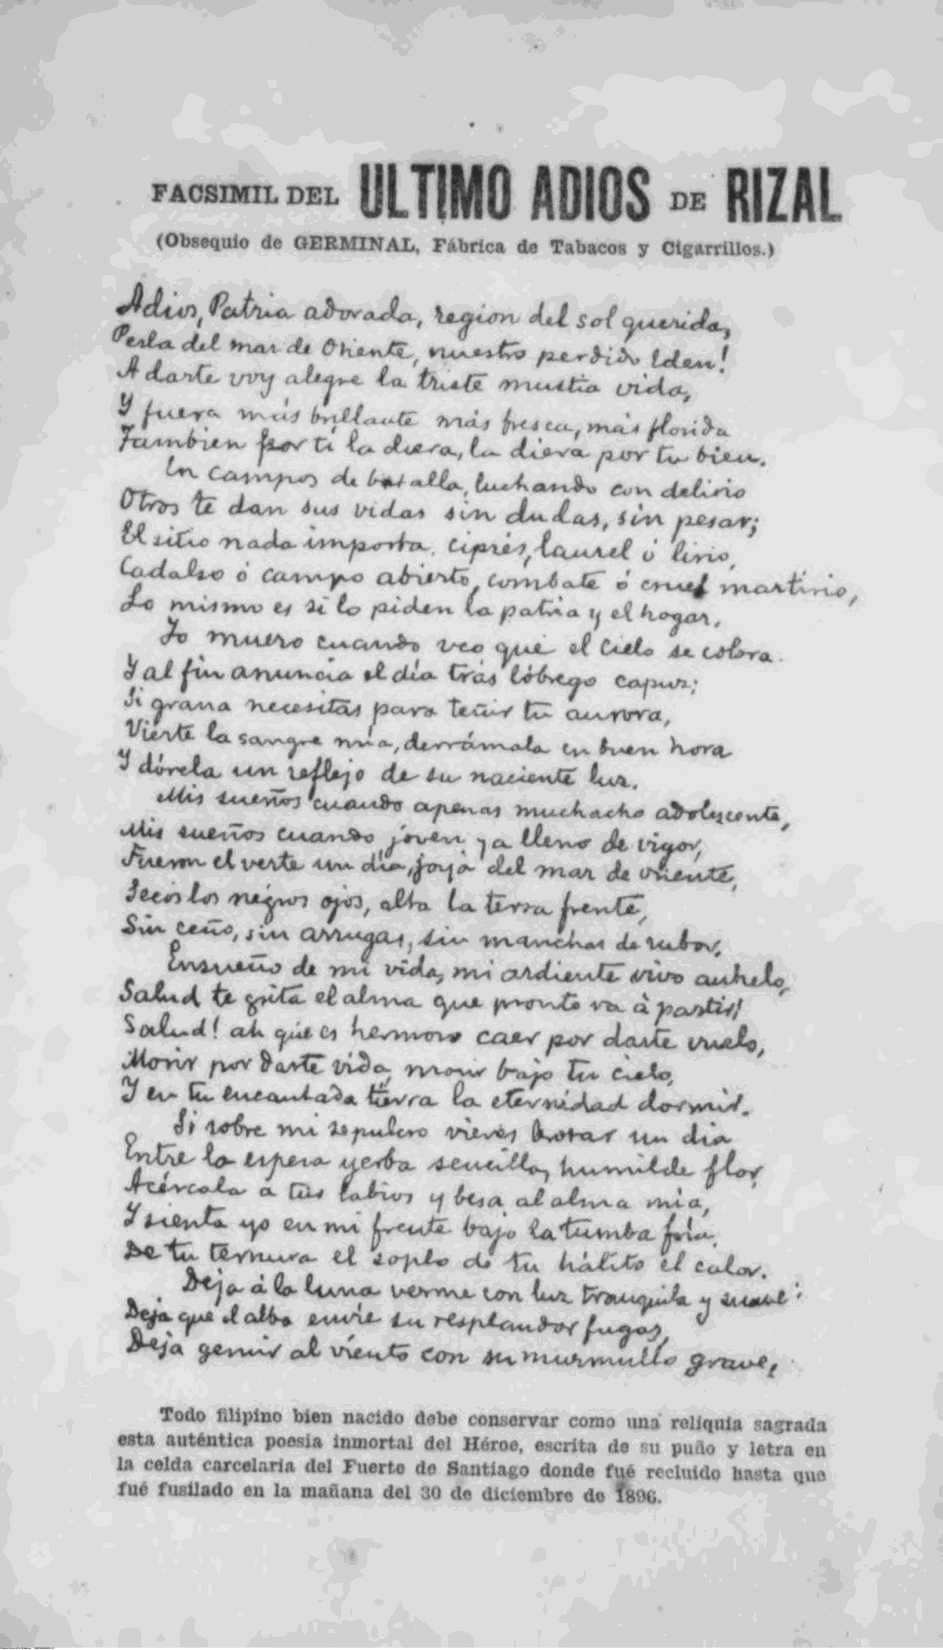 FACSIMIL DEL ULTIMO ADIOS DE RIZAL
(Obsequio de GERMINAL, Fábrica de Tabacos y Cigarrillos.)
Adios, Patria adorada, region del sol querida,
Perla del mar de Oriente, nuestro perdido Eden!
A darte voy alegre la triste mustia vida,
Y fuera más brillante más fresca, más florida
Tambien por tí la diera, la diera por tu bien.
En campos de batalla, luchando con delirio
Otros te dan sus vidas sin dudas, sin pesar;
El sitio nada importa, ciprés, laurel ó lirio,
Cadalso ó campo abierto, combate ó cruel martirio,
Lo mismo es si lo piden la patria y el hogar.
Yo muero cuando veo que el cielo se colora
Y al fin anuncia el día trás lóbrego capuz;
Si grana necesitas para teñir tu aurora,
Vierte la sangre mía, derrámala en buen hora
Y dórela un reflejo de su naciente luz.
Mis sueños cuando apenas muchacho adolescente,
Mis sueños cuando joven ya lleno de vigor,
Fueron el verte un día, joya del mar de oriente,
Secos los negros ojos, alta la tersa frente,
Sin ceño, sin arrugas, sin manchas de rubor.
Ensueño de mi vida, mi ardiente vivo anhelo,
Salud te grita el alma que pronto va á partir!
Salud! ah que es hermoso caer por darte vuelo,
Morir por darte vida, morir bajo tu cielo,
Y en tu encantada tierra la eternidad dormir.
Si sobre mi sepulcro vieres brotar un dia
Entre la espesa yerba sencilla, humilde flor,
Acércala a tus labios y besa al alma mia,
Y sienta yo en mi frente bajo la tumba fria,
De tu ternura el soplo de tu hálito el calor.
Deja á la luna verme con luz tranquila y suave:
Deja que el alba envíe su resplandor fugaz,
Deja gemir al viento con su murmullo grave,
Todo filipino bien nacido debe conservar como una reliquia sagrada
esta auténtica poesia inmortal del Héroe, escrita de su puño y letra en
la celda carcelaria del Fuerte de Santiago donde fué recluido hasta que
fué fusilado en la mañana del 30 de diciembre de 1896.